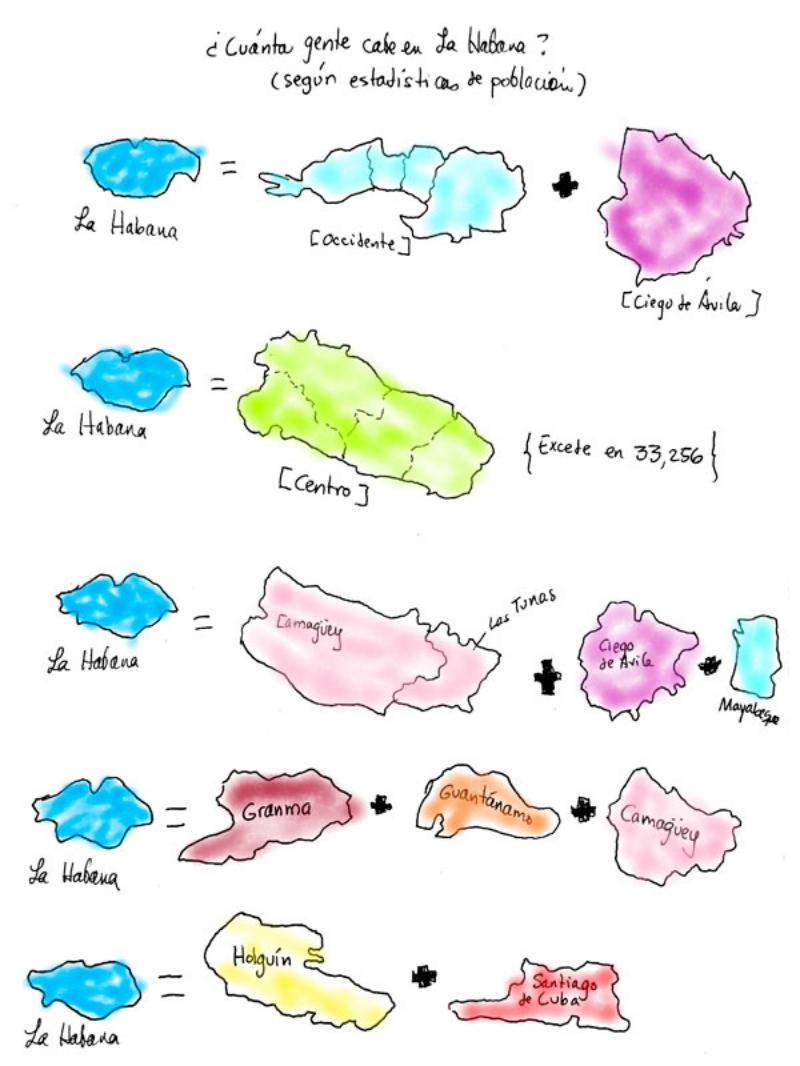 ¿Cuánta gente cabe en La Habana?
(según estadísticas de población)
La Habana
=
[Occidente]
+
[Ciego de Ávila]
La Habana
=
[Centro]
{Excede en 33,256}
La Habana
=
Camagüey
Las Tunas
+
Ciego
de Ávila
+
Mayabeque
La Habana
=
Granma
+
Guantánamo
+
Camagüey
La Habana
=
Holguín
+
Santiago
de Cuba